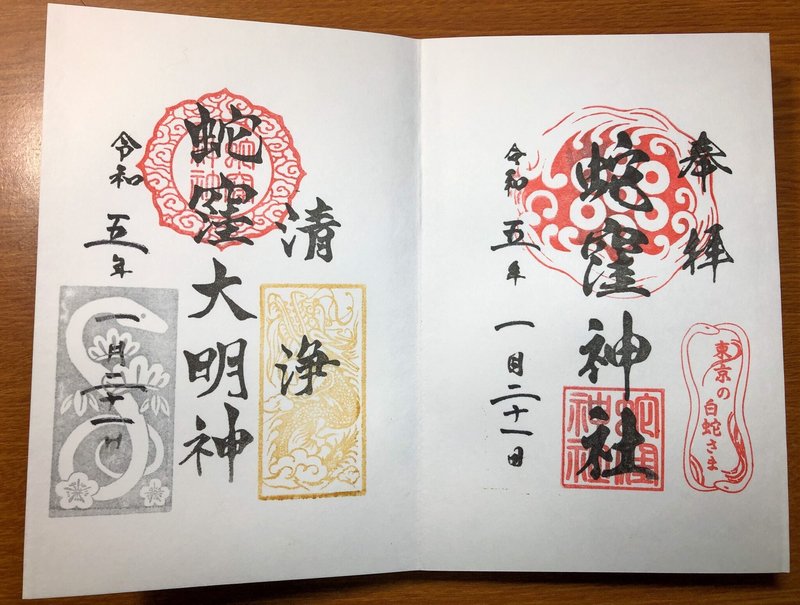 奉拝
蛇窪神社
令和五年一月二十一日
東京の
白蛇さま
蛇窪
神社
清浄
蛇窪大明神
令和五年一月二十一日